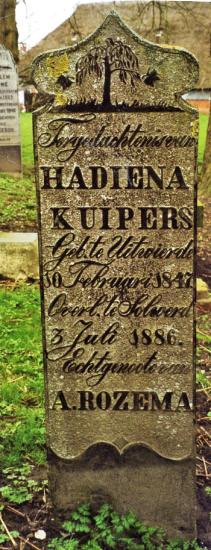 Ter gedachtenis van
HADIENA
KUIPERS
Geb. te Uitwierde
10 Februari 1847
Overl. te Solwerd
3 Juli 1886.
Echtgenoote van
A. ROZEMA